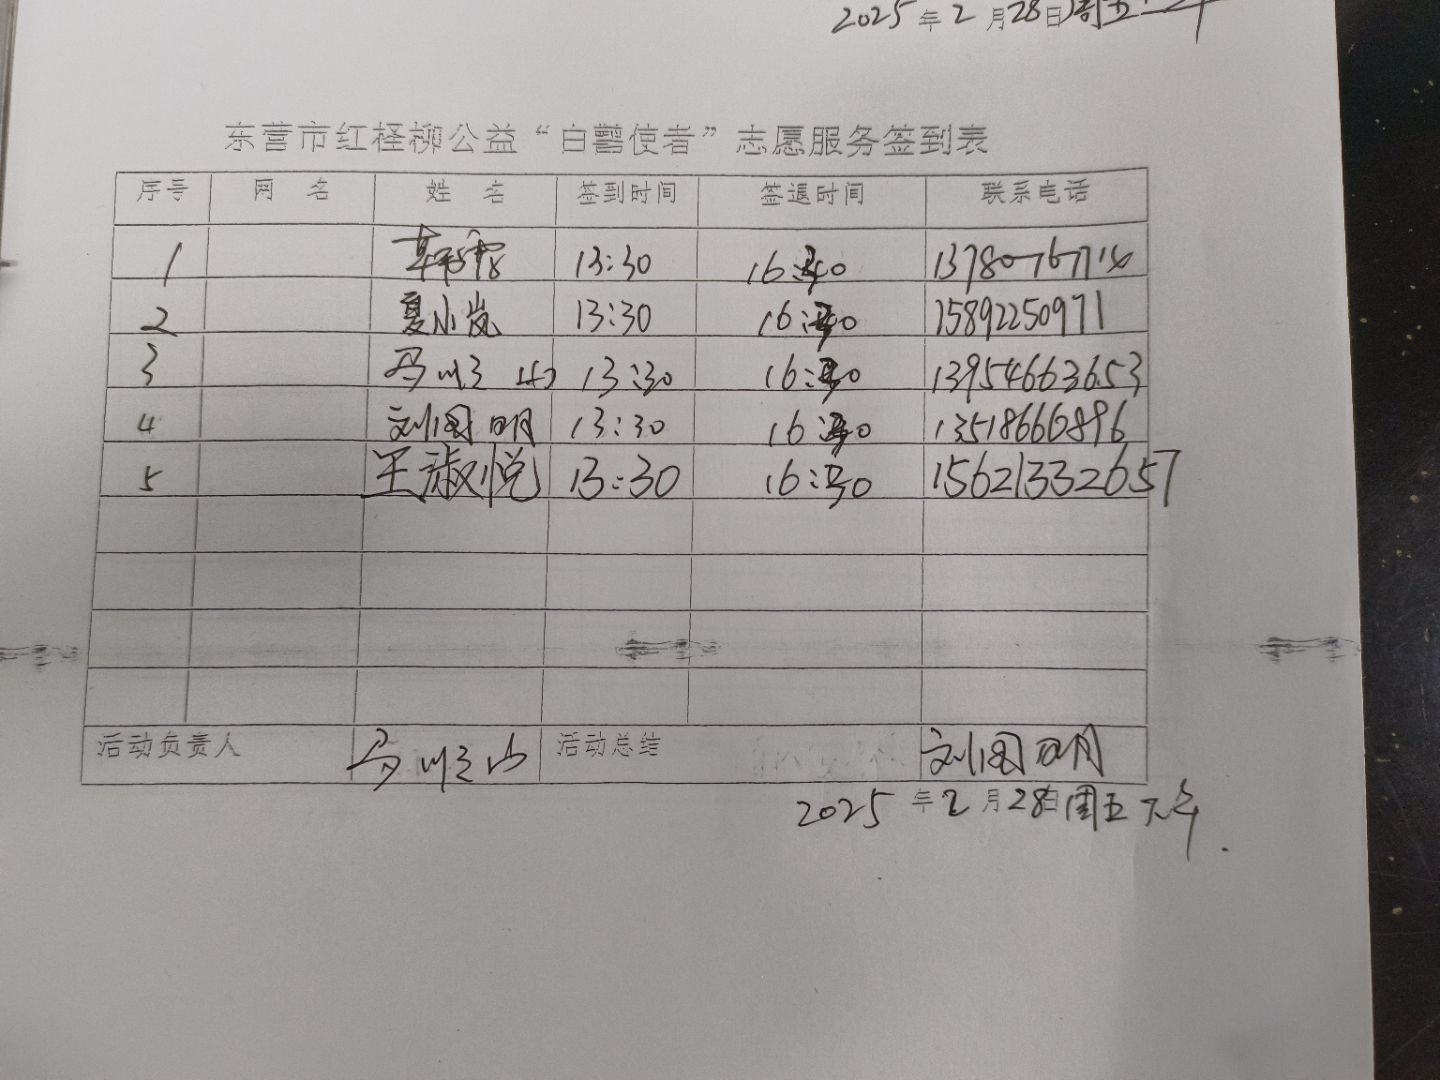 2025年2月28日周五上午
东营市红柽柳公益“白鹳使者”志愿服务签到表
序号 网 名 姓 名 签到时间 签退时间 联系电话
1 13:30 16: 0 1378076771
2 夏小岚 13:30 16: 0 15892250971
3 马 山 13:30 16: 0 13954663653
4 刘国明 13:30 16: 0 13518666896
5 王淑悦 13:30 16: 0 15621332657
活动负责人 马 山 活动总结 刘国明
2025年2月28日周五下午.